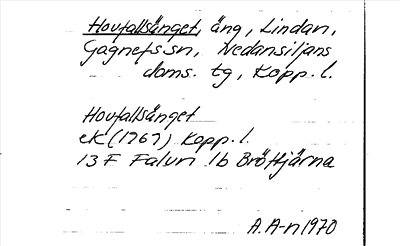 Hovfallsänget, äng, Lindan,
Gagnefs sn, Nedansiljans
doms. tg, Kopp. l.
Hovfallsänget
ek (1767) Kopp. l.
13 F Falun 1b Bröttjärna
A. A-n 1970